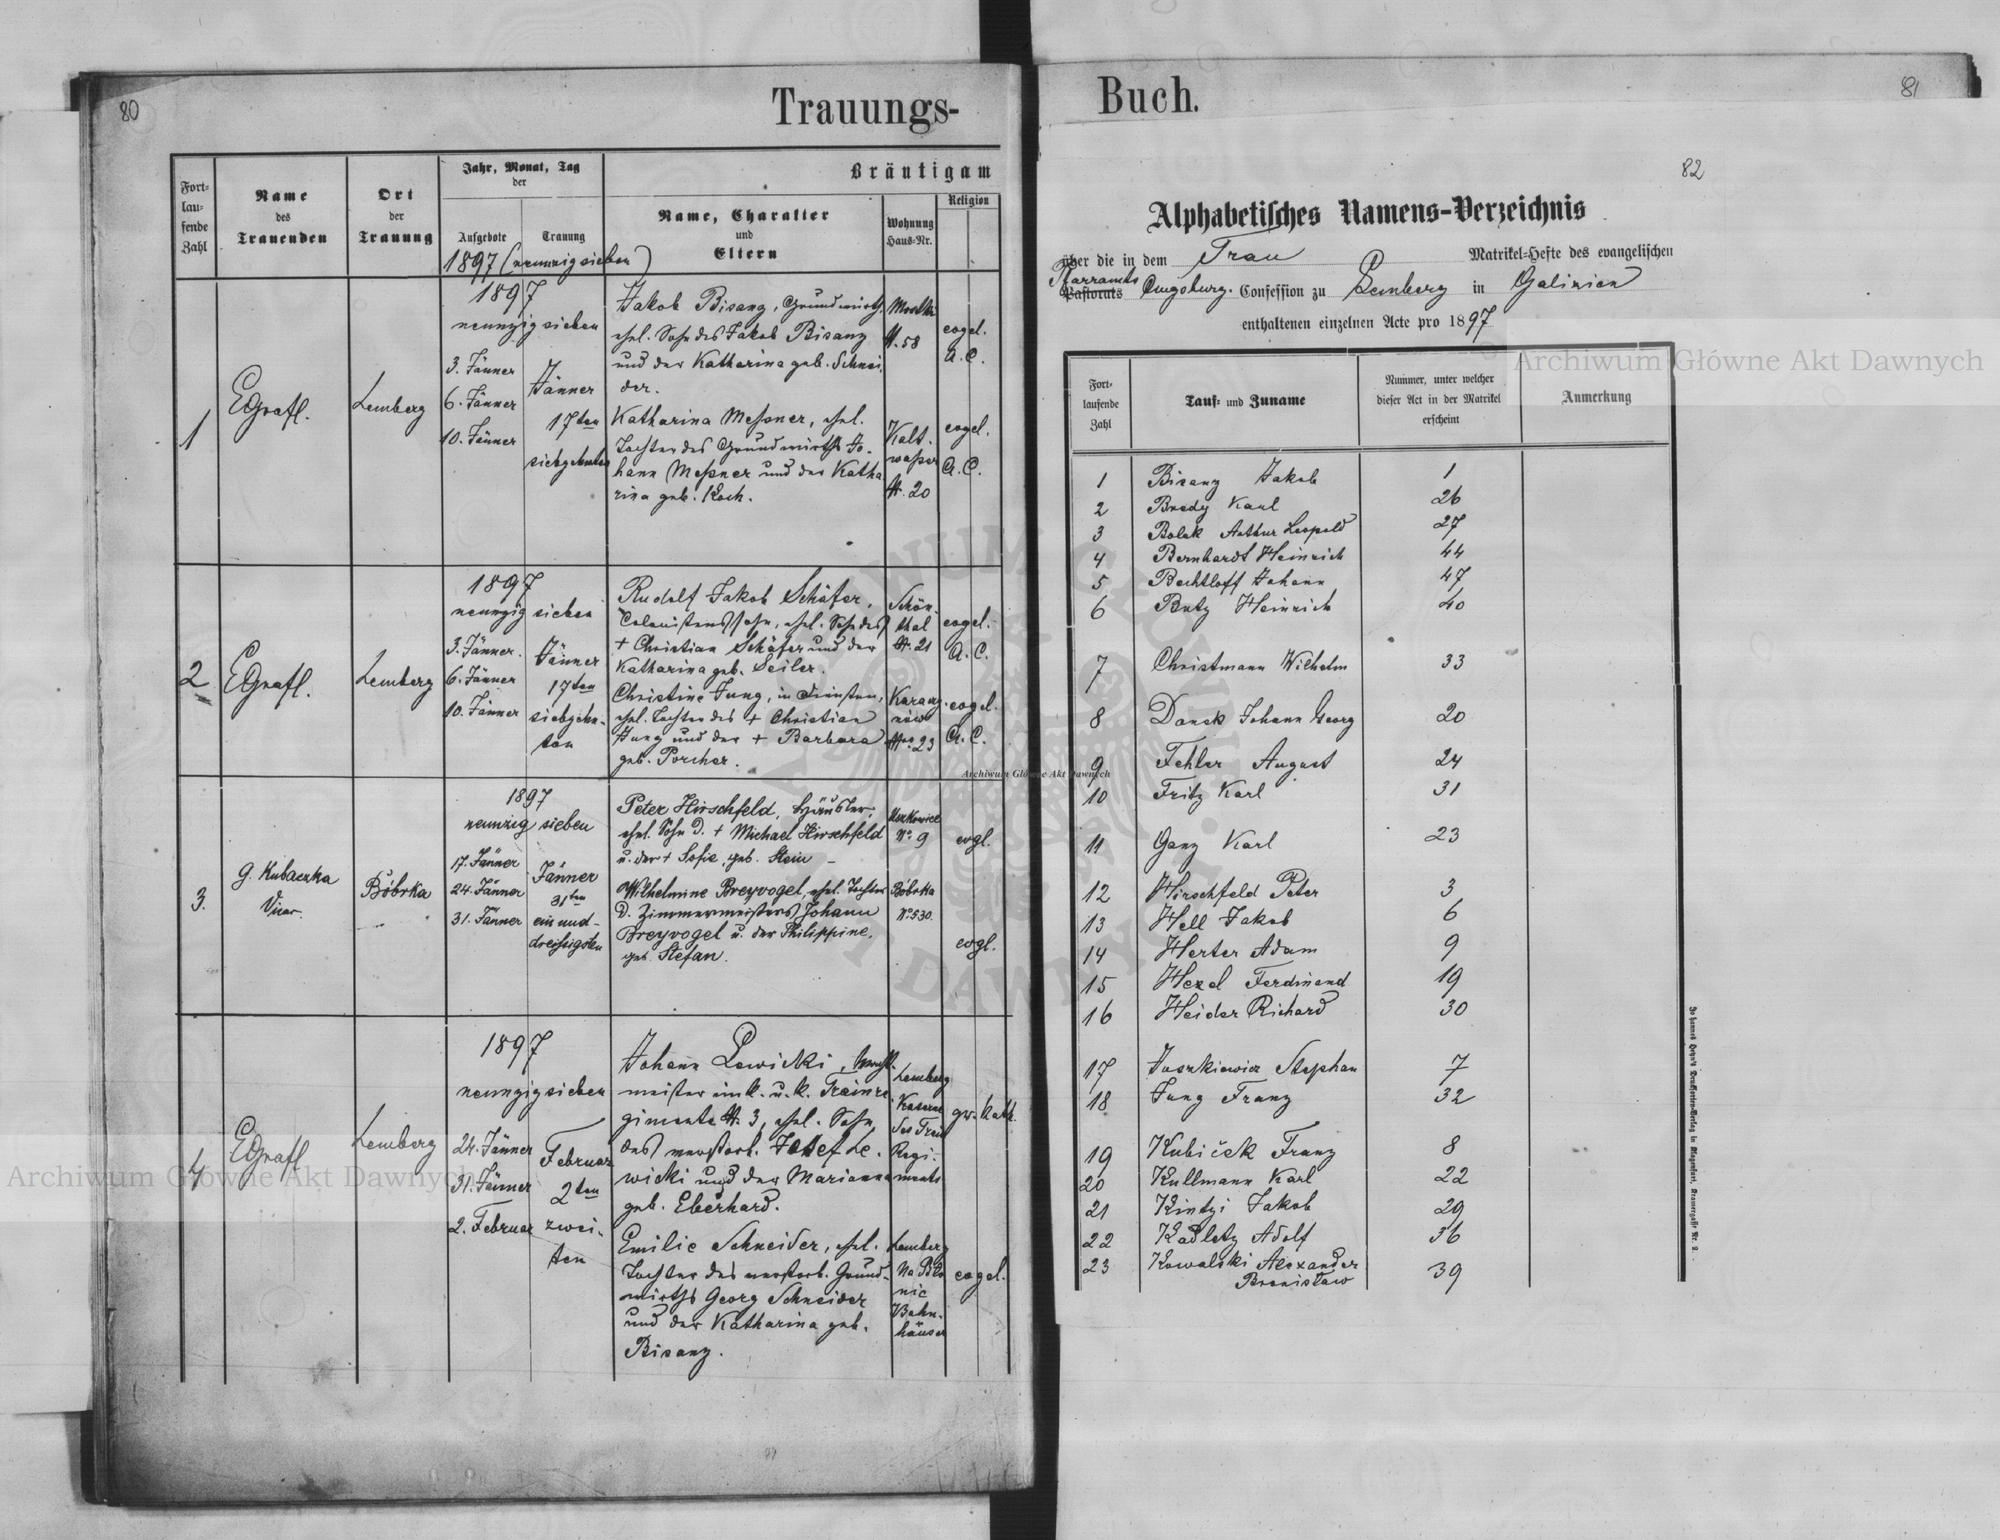 80
Trauungs-
Fort-
lau-
fende
Zahl
Name
des
Trauenden
Ort
der
Trauung
Jahr, Monat, Tag
der
Aufgebote
Trauung
Bräutigam
Name, Charakter
und
Eltern
Wohnung
Haus-Nr.
Religion
1897 (neunzigsieben)
1
EGrafl.
Lemberg
1897
neunzigsieben
3. Jänner
6. Jänner
10. Jänner
Jänner
17ten
siebzehnten
Jakob Bisanz, Grundwirth,
ehel. Sohn des Jakob Bisanz
und der Katharina geb. Schnei-
der.
N. 58
evgel.
A. C.
Katharina Meßner, ehel.
Tochter des Grundwirths Jo-
hann Meßner und der Katha
rina geb. Koch.
Kalt-
waßer
N. 20
evgel.
A. C.
2
EGrafl.
Lemberg
1897
neunzig sieben
3. Jänner.
6. Jänner
10. Jänner
Jänner
17ten
siebzehn-
ten
Rudolf Jakob Schäfer,
Colonistenssohn, ehel. Sohn des
+ Christian Schäfer und der
Katharina geb. Seiler.
Schön-
thal
N. 21
evgel.
A. C.
Christine Jung, in Diensten,
ehel. Tochter des + Christian
Jung und der + Barbara
geb. Porcher.
Karacz-
nów
No 23
evgel.
A. C.
3.
G. Kubaczka
Vicar.
Bóbrka
1897
neunzig sieben
17. Jänner
24. Jänner
31. Jänner
Jänner
31ten
ein und-
dreißigsten
Peter Hirschfeld, Häusler,
ehel. Sohn d. + Michael Hirschfeld
u. der + Sofie, geb. Stein
No 9
evgl.
Wilhelmine Breyvogel, ehel. Tochter
d. Zimmermeisters Johann
Breyvogel u. der Philippine,
geb. Stefan.
Bóbrka
No 530.
evgl.
4
EGrafl
Lemberg
1897
neunzigsieben
24. Jänner
31. Jänner
2. Februar
Februar
2ten
zwei-
ten
Johann Lewicki,
meister im k. u. k. Trainre
giments N. 3, ehel. Sohn
des verstorb. Josef Le-
wicki und der Marianna
geb. Eberhard.
Lemberg
Kaserne
des Train
Regi-
ments
gr. kath.
Emilie Schneider, ehel.
Tochter des verstorb. Grund-
wirths Georg Schneider
und der Katharina geb.
Bisanz.
Lemberg
Na Bło
nie
Bahn-
häuser
evgel.
Buch.
81
82
Alphabetisches Namens-Verzeichnis
über die in dem Trau Matrikel-Hefte des evangelischen
Pfarramts
Pastorats Augsburg. Confession zu Lemberg in Galizien
enthaltenen einzelnen Acte pro 1897
Fort-
laufende
Zahl
Tauf- und Zuname
Nummer, unter welcher
dieser Act in der Matrikel
erscheint
Anmerkung
1 Bisanz Jakob 1
2 Bredy Karl 26
3 Bolek Arthur Leopold 27
4 Bernhardt Heinrich 44
5 Bechtloff Johann 47
6 Butz Heinrich 40
7 Christmann Wilhelm 33
8 Danek Johann Georg 20
9 Fehler August 24
10 Fritz Karl 31
11 Ganz Karl 23
12 Hirschfeld Peter 3
13 Hell Jakob 6
14 Herter Adam 9
15 Hexel Ferdinand 19
16 Heider Richard 30
17 Juszkiewicz Stephan 7
18 Jung Franz 32
19 Kubiček Franz 8
20 Kullmann Karl 22
21 Kintzi Jakob 29
22 Kadletz Adolf 36
23 Kowalski Alexander 39
Bronisław
Johannes Heyn's Drucksorten-Verlag in Klagenfurt, Kramergasse Nr. 2.
Archiwum Główne Akt Dawnych
Archiwum Główne Akt Dawnych
Archiwum Główne Akt Dawnych